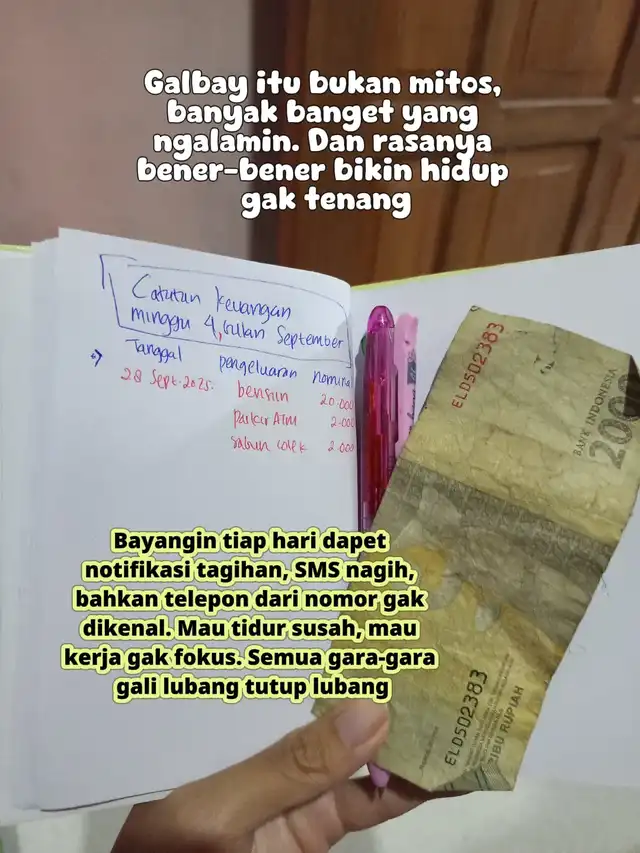 Galbay itu bukan mitos,
banyak banget yang
ngalamin. Dan rasanya
bener-bener bikin hidup
gak tenang
Catatan keuangan
minggu 4, bulan September
Tanggal pengeluaran nominal
28 Sept. 2025: bensin 20.000
parkir ATM 2.000
sabun colek 2.000
ELD502383
BANK INDONESIA
2000
Bayangin tiap hari dapet
notifikasi tagihan, SMS nagih,
bahkan telepon dari nomor gak
dikenal. Mau tidur susah, mau
kerja gak fokus. Semua gara-gara
gali lubang tutup lubang
ELD502383
RIBU RUPIAH